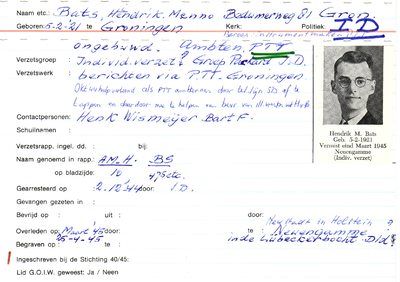 Naam etc: Bats, Hendrik Menno Bedumerweg 81 Gron
Geboren: 5-2-'21 te Groningen Kerk: Politiek: I D
Beroep instrumentmaker
ongehuwd. Ambten. PTT
Verzetsgroep : Individ. verzet? Groep Packard I.D.
Verzetswerk : berichten via P.T.T. Groningen
als PTT ambtenaar door tel. lijn SD af te
en daardoor
Contactpersonen: Henk Wismeijer Bart F.
Schuilnamen :
Verzetsrapp. ingel. dd. : bij:
Naam genoemd in rapp: AM.H. BS
op bladzijde: 10
Gearresteerd op : 2-12-'44 door: I D.
Gevangen gezeten in :
Bevrijd op : uit : door: Neustadt in Holstein ?
Overleden op : Maart '45 te : Neuengamme
Begraven op : 25-4-45 te : in de Lübeckerbocht Dld
Ingeschreven bij de Stichting 40/45:
Lid G.O.I.W. geweest: Ja / Neen
Hendrik M. Bats
Geb. 5-2-1921
Vermist eind Maart 1945
Neuengamme
(Indiv. verzet)